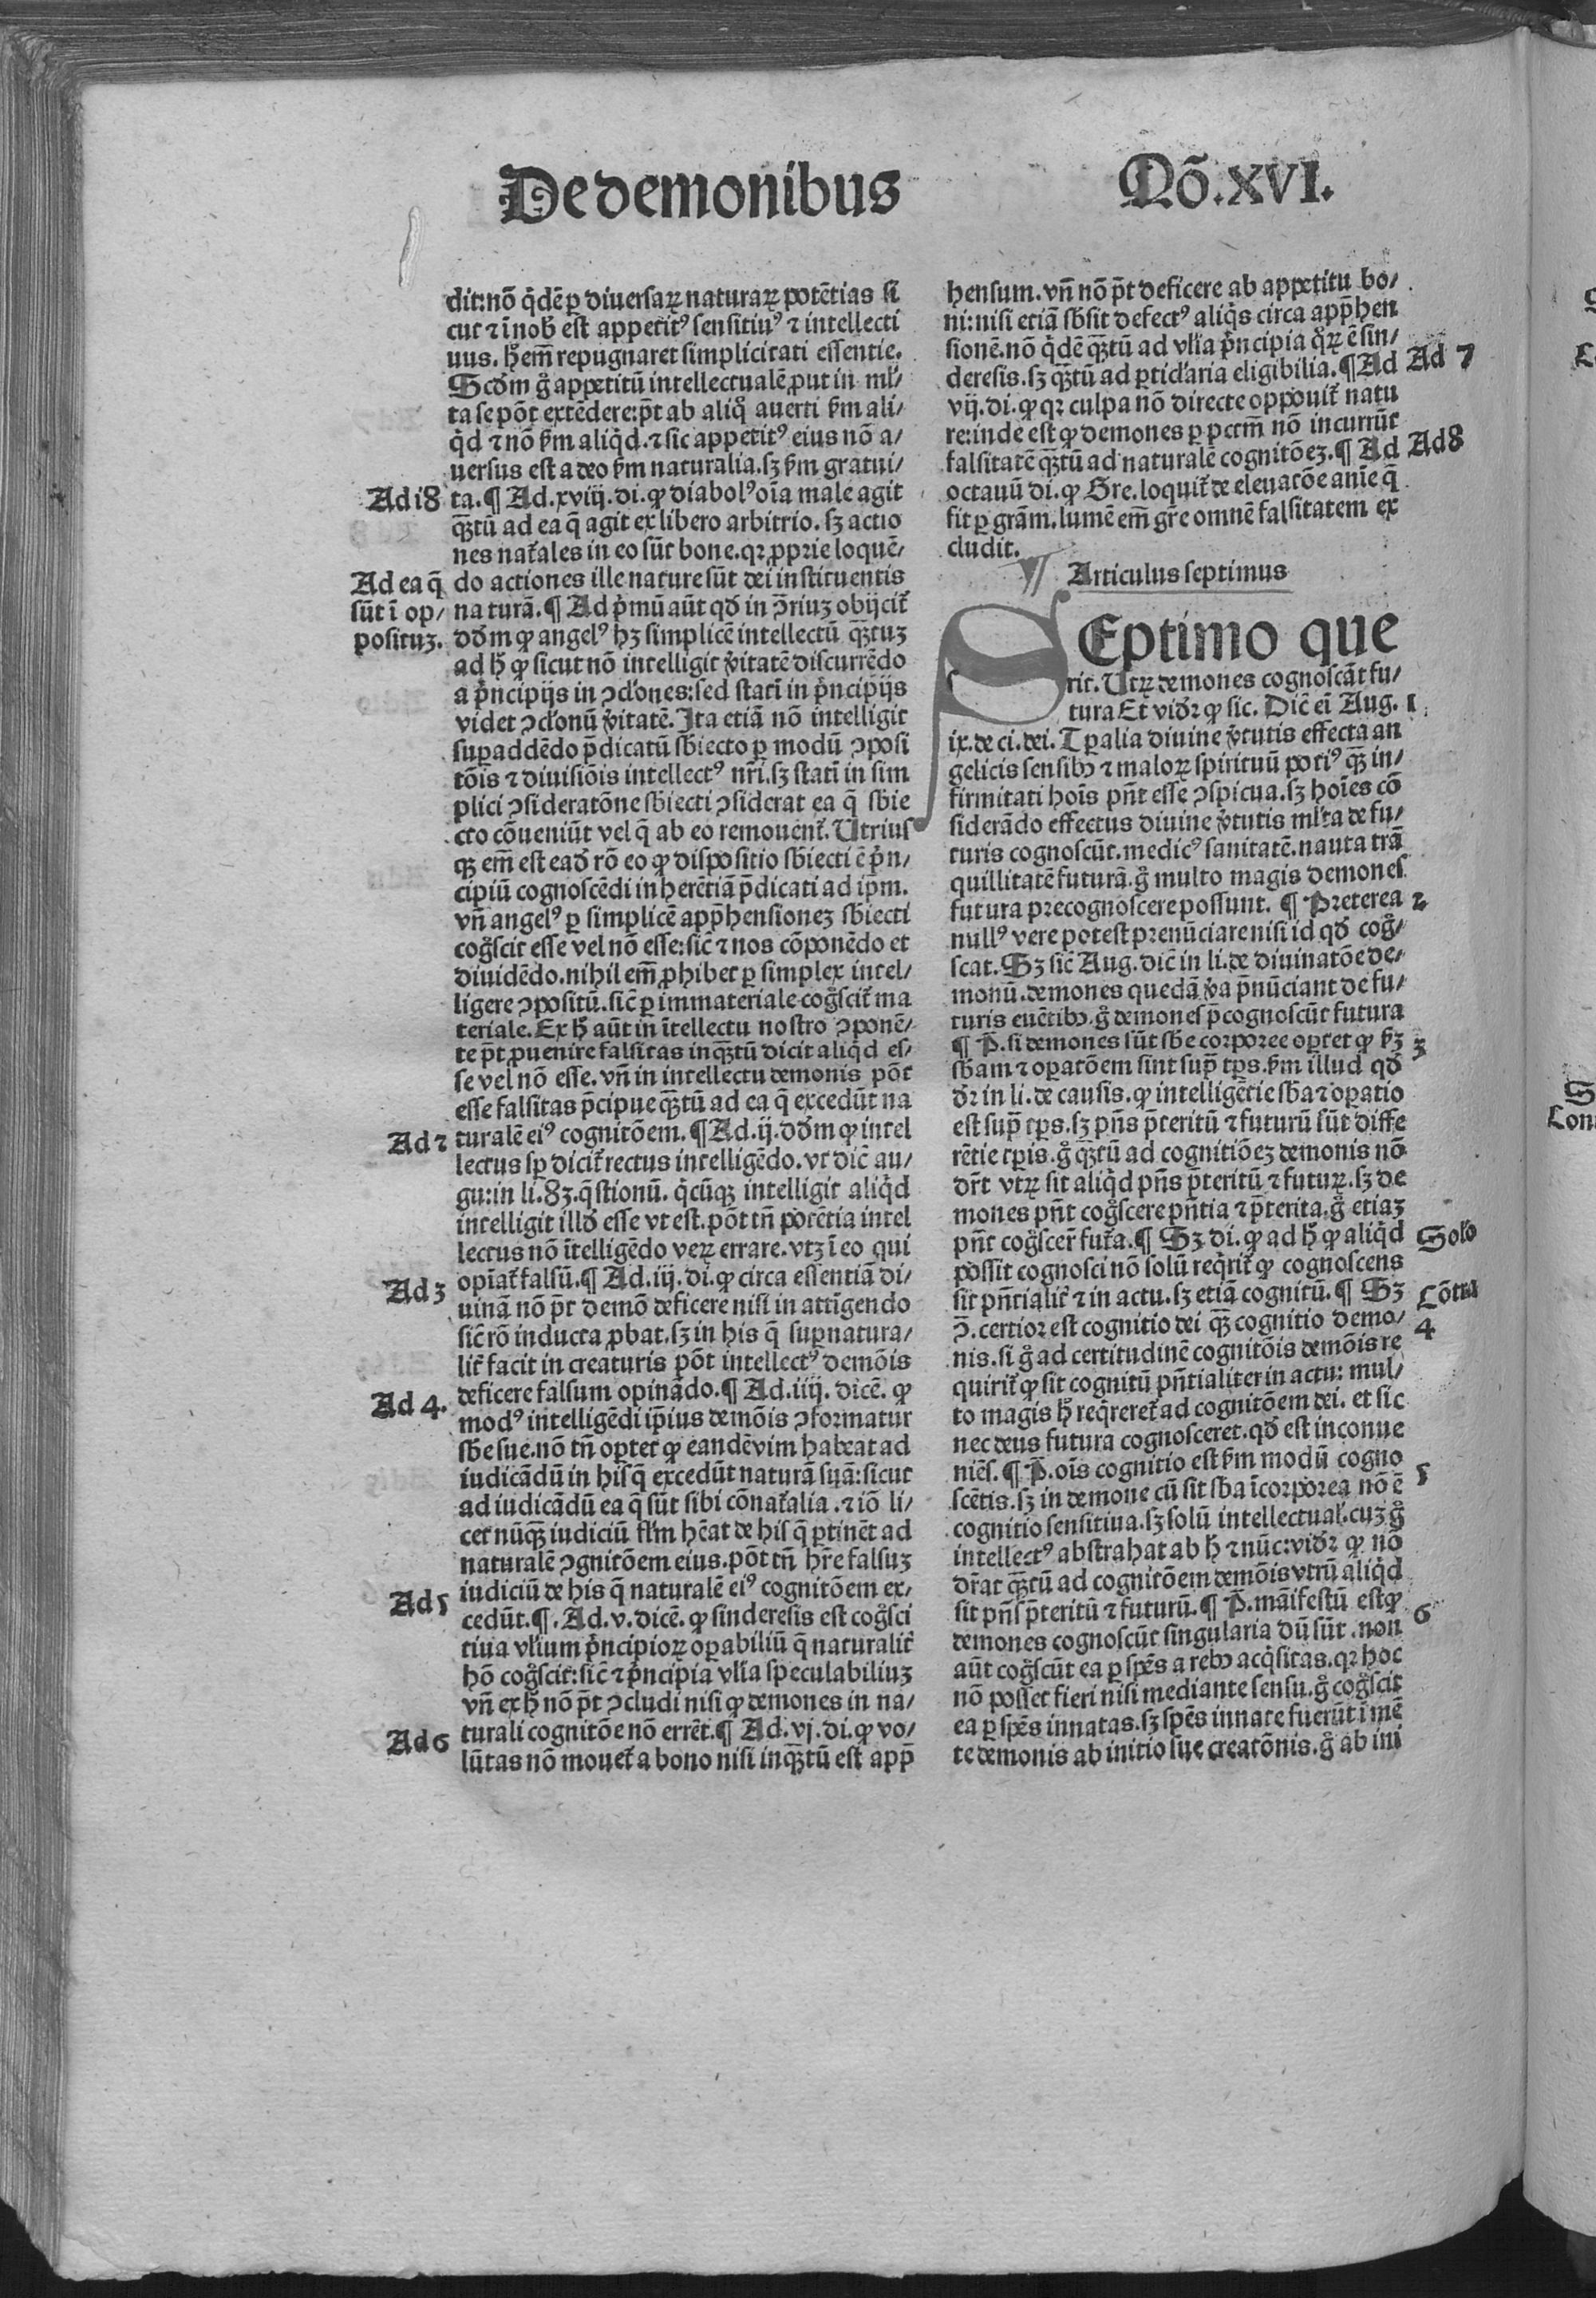 De demonibus
Qō.XVI.
dit:nō q̇dē ꝑ diuersaꝝ naturaꝝ potētias si
cut ⁊ ī nob̄ est appetitꝰ sensitiuꝰ ⁊ intellecti
uus. h̄ em̄ repugnaret simplicitati essentie.
Scd̓m g̊ appetitū intellectualē ꝓut in ml̓/
ta se pōt extēdere:pt̄ ab aliq̊ auerti ẜm ali/
q̇d ⁊ nō ẜm aliq̇d.⁊ sic appetitꝰ eius nō a/
uersus est a deo ẜm naturalia.sꝫ ẜm gratui/
Ad 18
ta.¶ Ad.xviij.di.ꝙ diabolꝰ oīa male agit
qꝫ̄tū ad ea q̄ agit ex libero arbitrio.sꝫ actio
nes nat̓ales in eo sūt bone.qꝛ ꝓprie loquē/
Ad ea q̄
sūt ī op/
posituꝫ.
do actiones ille nature sūt dei instituentis
naturā.¶ Ad p̓mū aūt qd̓ in ꝯ̄riuꝫ obijcit̓
dd̓m ꝙ angelꝰ hꝫ simplicē intellectū qꝫ̄tuꝫ
ad h̄ ꝙ sicut nō intelligit v̓itatē discurrēdo
a p̓ncipijs in ꝯcl̓ones:sed stati in p̓ncipijs
videt ꝯcl̓onū v̓itatē.Ita etiā nō intelligit
suꝑaddēdo p̄dicatū sb̓iecto ꝑ modū ꝯposi
tōis ⁊ diuisiōis intellectꝰ nr̄i.sꝫ stati in sim
plici ꝯsideratōne sb̓iecti ꝯsiderat ea q̄ sb̓ie
cto cōueniūt vel q̄ ab eo remouent̓.Utrius
qꝫ em̄ est ead̓ rō eo ꝙ dispositio sb̓iecti ē p̓n/
cipiū cognoscēdi inherētiā p̄dicati ad ip̄m.
vn̄ angelꝰ ꝑ simplicē app̄hensioneꝫ sb̓iecti
cog̊scit esse vel nō esse:sic̄ ⁊ nos cōponēdo et
diuidēdo.nihil em̄ ꝓhibet ꝑ simplex intel/
ligere ꝯpositū.sic̄ ꝑ immateriale cog̊scit̓ ma
teriale.Ex h̄ aūt in ītellectu nostro ꝯponē/
te pt̄ ꝓuenire falsitas inqꝫ̄tū dicit aliq̇d es/
se vel nō esse.vn̄ in intellectu demonis pōt
esse falsitas p̄cipue qꝫ̄tū ad ea q̄ excedūt na
Ad 2
turalē eiꝰ cognitōem.¶ Ad.ij.dd̓m ꝙ intel
lectus sꝑ dicit̓ rectus intelligēdo.vt dic̄ au/
gu:in li.83.q̄stionū.q̇cūqꝫ intelligit aliq̇d
intelligit illd̓ esse vt est.pōt tn̄ potētia intel
lectus nō ītelligēdo veꝝ errare.vtꝫ ī eo qui
Ad 3
opīat̓ falsū.¶ Ad.iij.di.ꝙ circa essentiā di/
uinā nō pt̄ demō deficere nisi in attīgendo
sic̄ rō inducta ꝓbat.sꝫ in his q̄ suꝑnatura/
lit̓ facit in creaturis pōt intellectꝰ demōis
Ad 4.
deficere falsum opinādo.¶ Ad.iiij.dicē.ꝙ
modꝰ intelligēdi ip̄ius demōis ꝯformatur
sb̓e sue.nō tn̄ oꝑtet ꝙ eandē vim habeat ad
iudicādū in his q̄ excedūt naturā suā:sicut
ad iudicādū ea q̄ sūt sibi cōnat̓alia.⁊ iō li/
cet nūqꝫ̄ iudiciū fl̓m hēat de his q̄ ꝑtinēt ad
naturalē ꝯgnitōem eius.pōt tn̄ hr̄e falsuꝫ
Ad 5
iudiciū de his q̄ naturalē eiꝰ cognitōem ex/
cedūt.¶.Ad.v.dicē.ꝙ sinderesis est cog̊sci
tiua vl̓ium p̓ncipioꝝ oꝑabiliū q̄ naturalit̓
hō cog̊scit:sic̄ ⁊ p̓ncipia vl̓ia speculabiliuꝫ
vn̄ ex h̄ nō pt̄ ꝯcludi nisi ꝙ demones in na/
Ad 6
turali cognitōe nō errēt.¶ Ad.vj.di.ꝙ vo/
lūtas nō mouet̓ a bono nisi inqꝫ̄tū est app̄
hensum.vn̄ nō pt̄ deficere ab appetitu bo/
ni:nisi etiā sb̓sit defectꝰ aliq̇s circa app̄hen
sionē.nō q̇dē qꝫ̄tū ad vl̓ia p̓ncipia q̊ꝝ ē sin/
deresis.sꝫ qꝫ̄tū ad ꝑticl̓aria eligibilia.¶ Ad
Ad 7
vij.di.ꝙ qꝛ culpa nō directe opponit̓ natu
re:inde est ꝙ demones ꝑ pcc̄m nō incurrūt
falsitatē qꝫ̄tū ad naturalē cognitōeꝫ.¶ Ad
Ad 8
octauū di.ꝙ Gre.loquit̓ de eleuatōe anīe q̄
fit ꝑ grām.lumē em̄ gr̄e omnē falsitatem ex
cludit.
Articulus septimus
SEptimo que
rit.Utꝝ demones cognoscāt fu/
tura Et vid̓ꝛ ꝙ sic. Dic̄ eī Aug.
1
ix.de ci.dei. Tꝑalia diuine v̓tutis effecta an
gelicis sensibꝫ ⁊ maloꝝ spirituū potiꝰ qꝫ̄ in/
firmitati hoīs pn̄t esse ꝯspicua.sꝫ hoīes cō
siderādo effectus diuine v̓tutis ml̓ta de fu/
turis cognoscūt.medicꝰ sanitatē.nauta trā
quillitatē futurā.g̊ multo magis demones
futura precognoscere possunt. ¶ Preterea
2
nullꝰ vere potest prenūciare nisi id qd̓ cog̊/
scat.Sꝫ sic̄ Aug.dic̄ in li.de diuinatōe de/
monū.demones quedā v̓a p̄nūciant de fu/
turis euētibꝫ.g̊ demones p̄cognoscūt futura
¶ P̄.si demones sūt sb̓e corporee oꝑtet ꝙ ẜꝫ
3
sb̓am ⁊ oꝑatōem sint sup̄ tp̄s.ẜm illud qd̓
d̓ꝛ in li.de causis.ꝙ intelligētie sb̓a ⁊ oꝑatio
est sup̄ tp̄s.sꝫ pn̄s p̄teritū ⁊ futurū sūt diffe
rētie tꝑis.g̊ qꝫ̄tū ad cognitiōeꝫ demonis nō
dr̄t vtꝝ sit aliq̇d pn̄s p̄teritū ⁊ futuꝝ.sꝫ de
mones pn̄t cog̊scere pn̄tia ⁊ p̄terita.g̊ etiaꝫ
pn̄t cog̊scer̄ fut̓a.¶ Sꝫ di.ꝙ ad h̄ ꝙ aliq̇d
Solo
possit cognosci nō solū req̇rit̓ ꝙ cognoscens
sit pn̄tialit̓ ⁊ in actu.sꝫ etiā cognitū.¶ Sꝫ
Cōtra
4
ꝯ̄.certior est cognitio dei qꝫ̄ cognitio demo/
nis.si g̊ ad certitudinē cognitōis demōis re
quirit̓ ꝙ sit cognitū pn̄tialiter in actu: mul/
to magis h̄ req̇reret̓ ad cognitōem dei. et sic
nec deus futura cognosceret.qd̓ est inconue
niēs.¶ P̄.oīs cognitio est ẜm modū cogno
5
scētis.sꝫ in demone cū sit sb̓a īcorporea nō ē
cognitio sensitiua.sꝫ solū intellectual̓.cuꝫ g̊
intellectꝰ abstrahat ab h̄ ⁊ nūc:vid̓ꝛ ꝙ nō
dr̄at qꝫ̄tū ad cognitōem demōis vtrū aliq̇d
sit pn̄s p̄teritū ⁊ futurū.¶ P̄.māifestū est ꝙ
6
demones cognoscūt singularia dū sūt.non
aūt cog̊scūt ea ꝑ spēs a rebꝫ acq̇sitas.qꝛ hoc
nō posset fieri nisi mediante sensu.g̊ cog̊scūt
ea ꝑ spēs innatas.sꝫ spēs innate fuerūt ī mē
te demonis ab initio sue creatōnis.g̊ ab ini